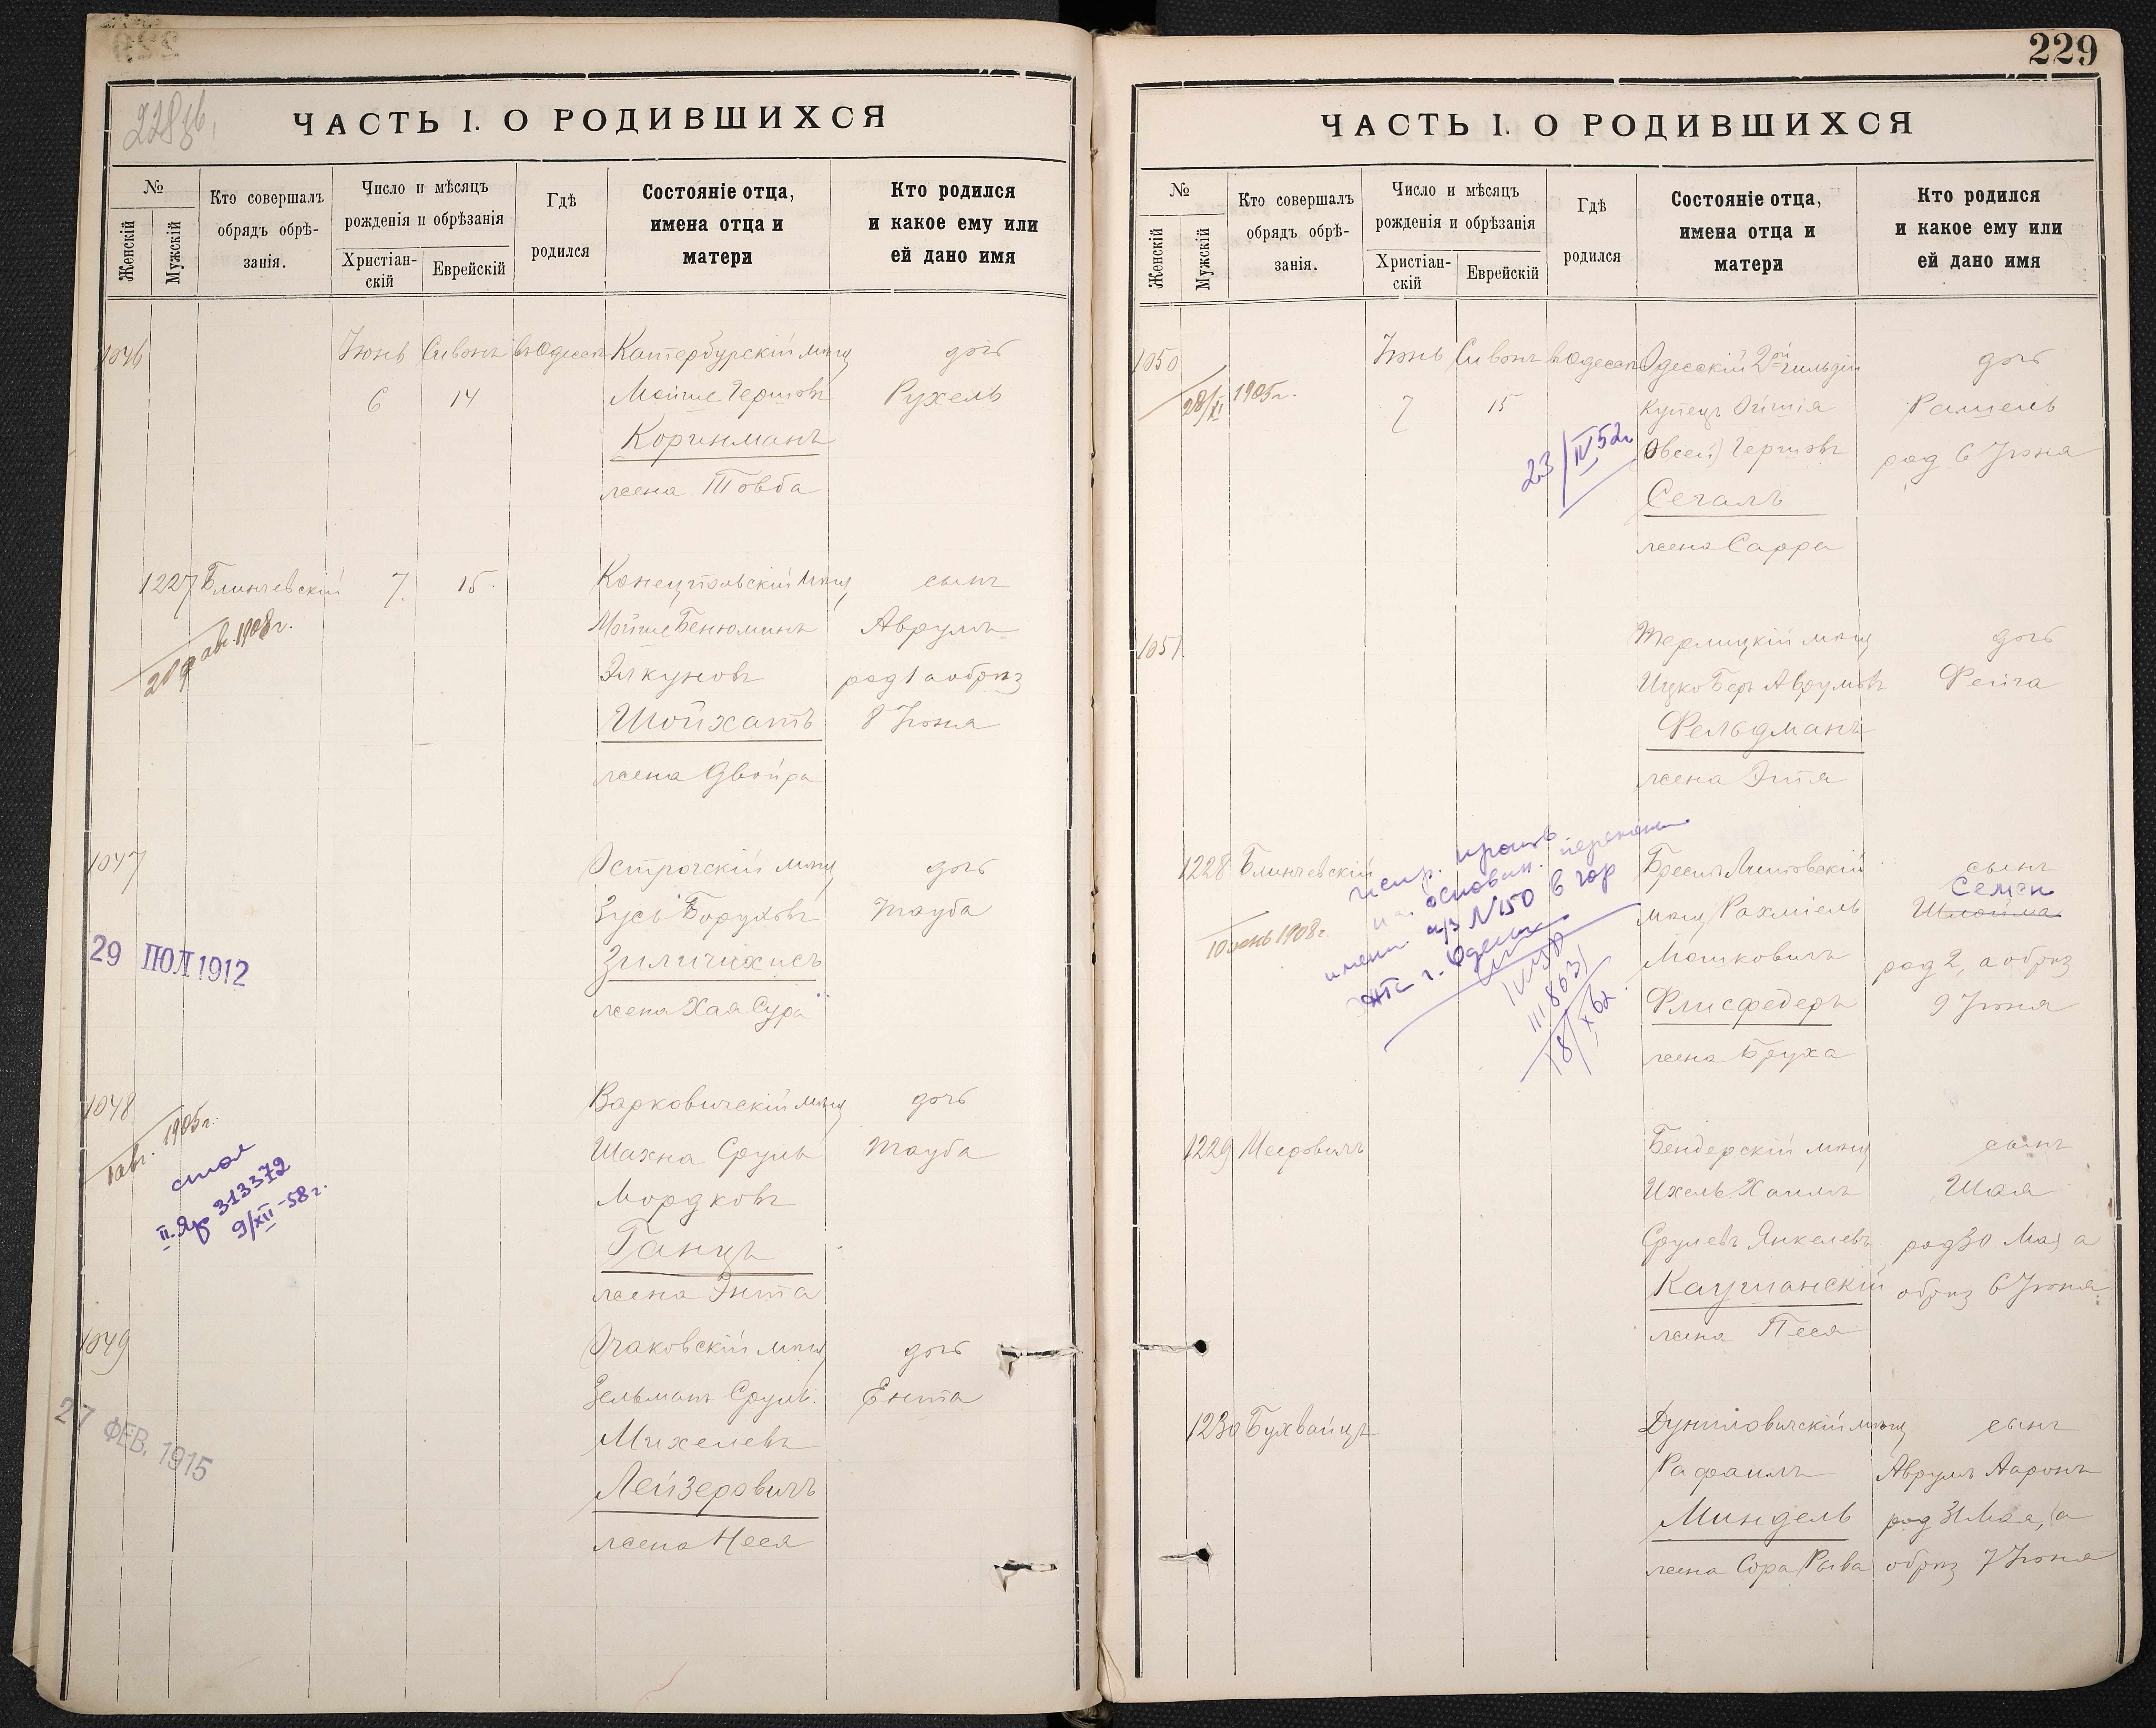 228 об.
ЧАСТЬ I. О РОДИВШИХСЯ
№
Женскій
Мужскій
Кто совершалъ
обрядъ обрѣ-
занія.
Число и мѣсяцъ
рожденія и обрѣзанія
Христіан-
скій
Еврейскій
Гдѣ
родился
Состояніе отца,
имена отца и
матери
Кто родился
и какое ему или
ей дано имя
1046 Іюнь Сивонъ въ Одессѣ Катербурскій мѣщ дочь
6 14 Мойше Гершовъ Рухель
Коринманъ
жена Товба
1227 Блинчевскій 7. 15. Конецпольскій мѣщ сынъ
авг. 1908 г. Мойше Бенюминъ Аврумъ
Элкуновъ род 1 а обрѣз
Шойхатъ 8 Іюня
жена Двойра
1047 Острогскій мѣщ дочь
Зусь Боруховъ Тауба
29 ІЮЛ 1912
Зиличихисъ
жена Хая Сура
1048 Варковичскій мѣщ дочь
1 авг. 1905 г. Шахна Сруль Тауба
Мордковъ
II. Яр 313372
9/XII-58 г.
Ганцъ
жена Энта
1049 Очаковскій мѣщ дочь
Зельманъ Сруль Ента
27 ФЕВ. 1915
Михелевъ
Лейзеровичъ
жена Неся
229
ЧАСТЬ I. О РОДИВШИХСЯ
№
Женскій
Мужскій
Кто совершалъ
обрядъ обрѣ-
занія.
Число и мѣсяцъ
рожденія и обрѣзанія
Христіан-
скій
Еврейскій
Гдѣ
родился
Состояніе отца,
имена отца и
матери
Кто родился
и какое ему или
ей дано имя
1050 Іюнь Сивонъ въ Одессѣ Одесскій 2ой гильдіи дочь
28/XI 1905 г. 7 15 купецъ Ойшія Рашель
23/IV 52 г (Овсей) Гершовъ род 6 Іюня
Сегалъ
жена Сарра
1051. Терлицкій мѣщ дочь
Ицко Беръ Аврумовъ Фейга
Фельдманъ
жена Этя
1228 Блинчевскій Брестъ Литовскій сынъ
Семен
10 іюнь 1908 г. мѣщ Рахміель Шлойма
Мошковичъ род 2, а обрѣз
Флисфедеръ 9 Іюня
жена Бруха
на основан. перемены
имени а/з N 150 в гор
ЗАГС г. Одессы
III 863
18/X 62
1229 Мееровичъ Бендерскій мѣщ сынъ
Ихель Хаимъ Шая
Срулевъ Янкелевъ род 30 Мая, а
Каушанскій обрѣз 6 Іюня
жена Песя
1230 Бухвайцъ Дуниловичскій мѣщ сынъ
Рафаилъ Аврумъ Ааронъ
Миндель род 31 Мая, а
жена Сора Рыва обрѣз 7 Іюня